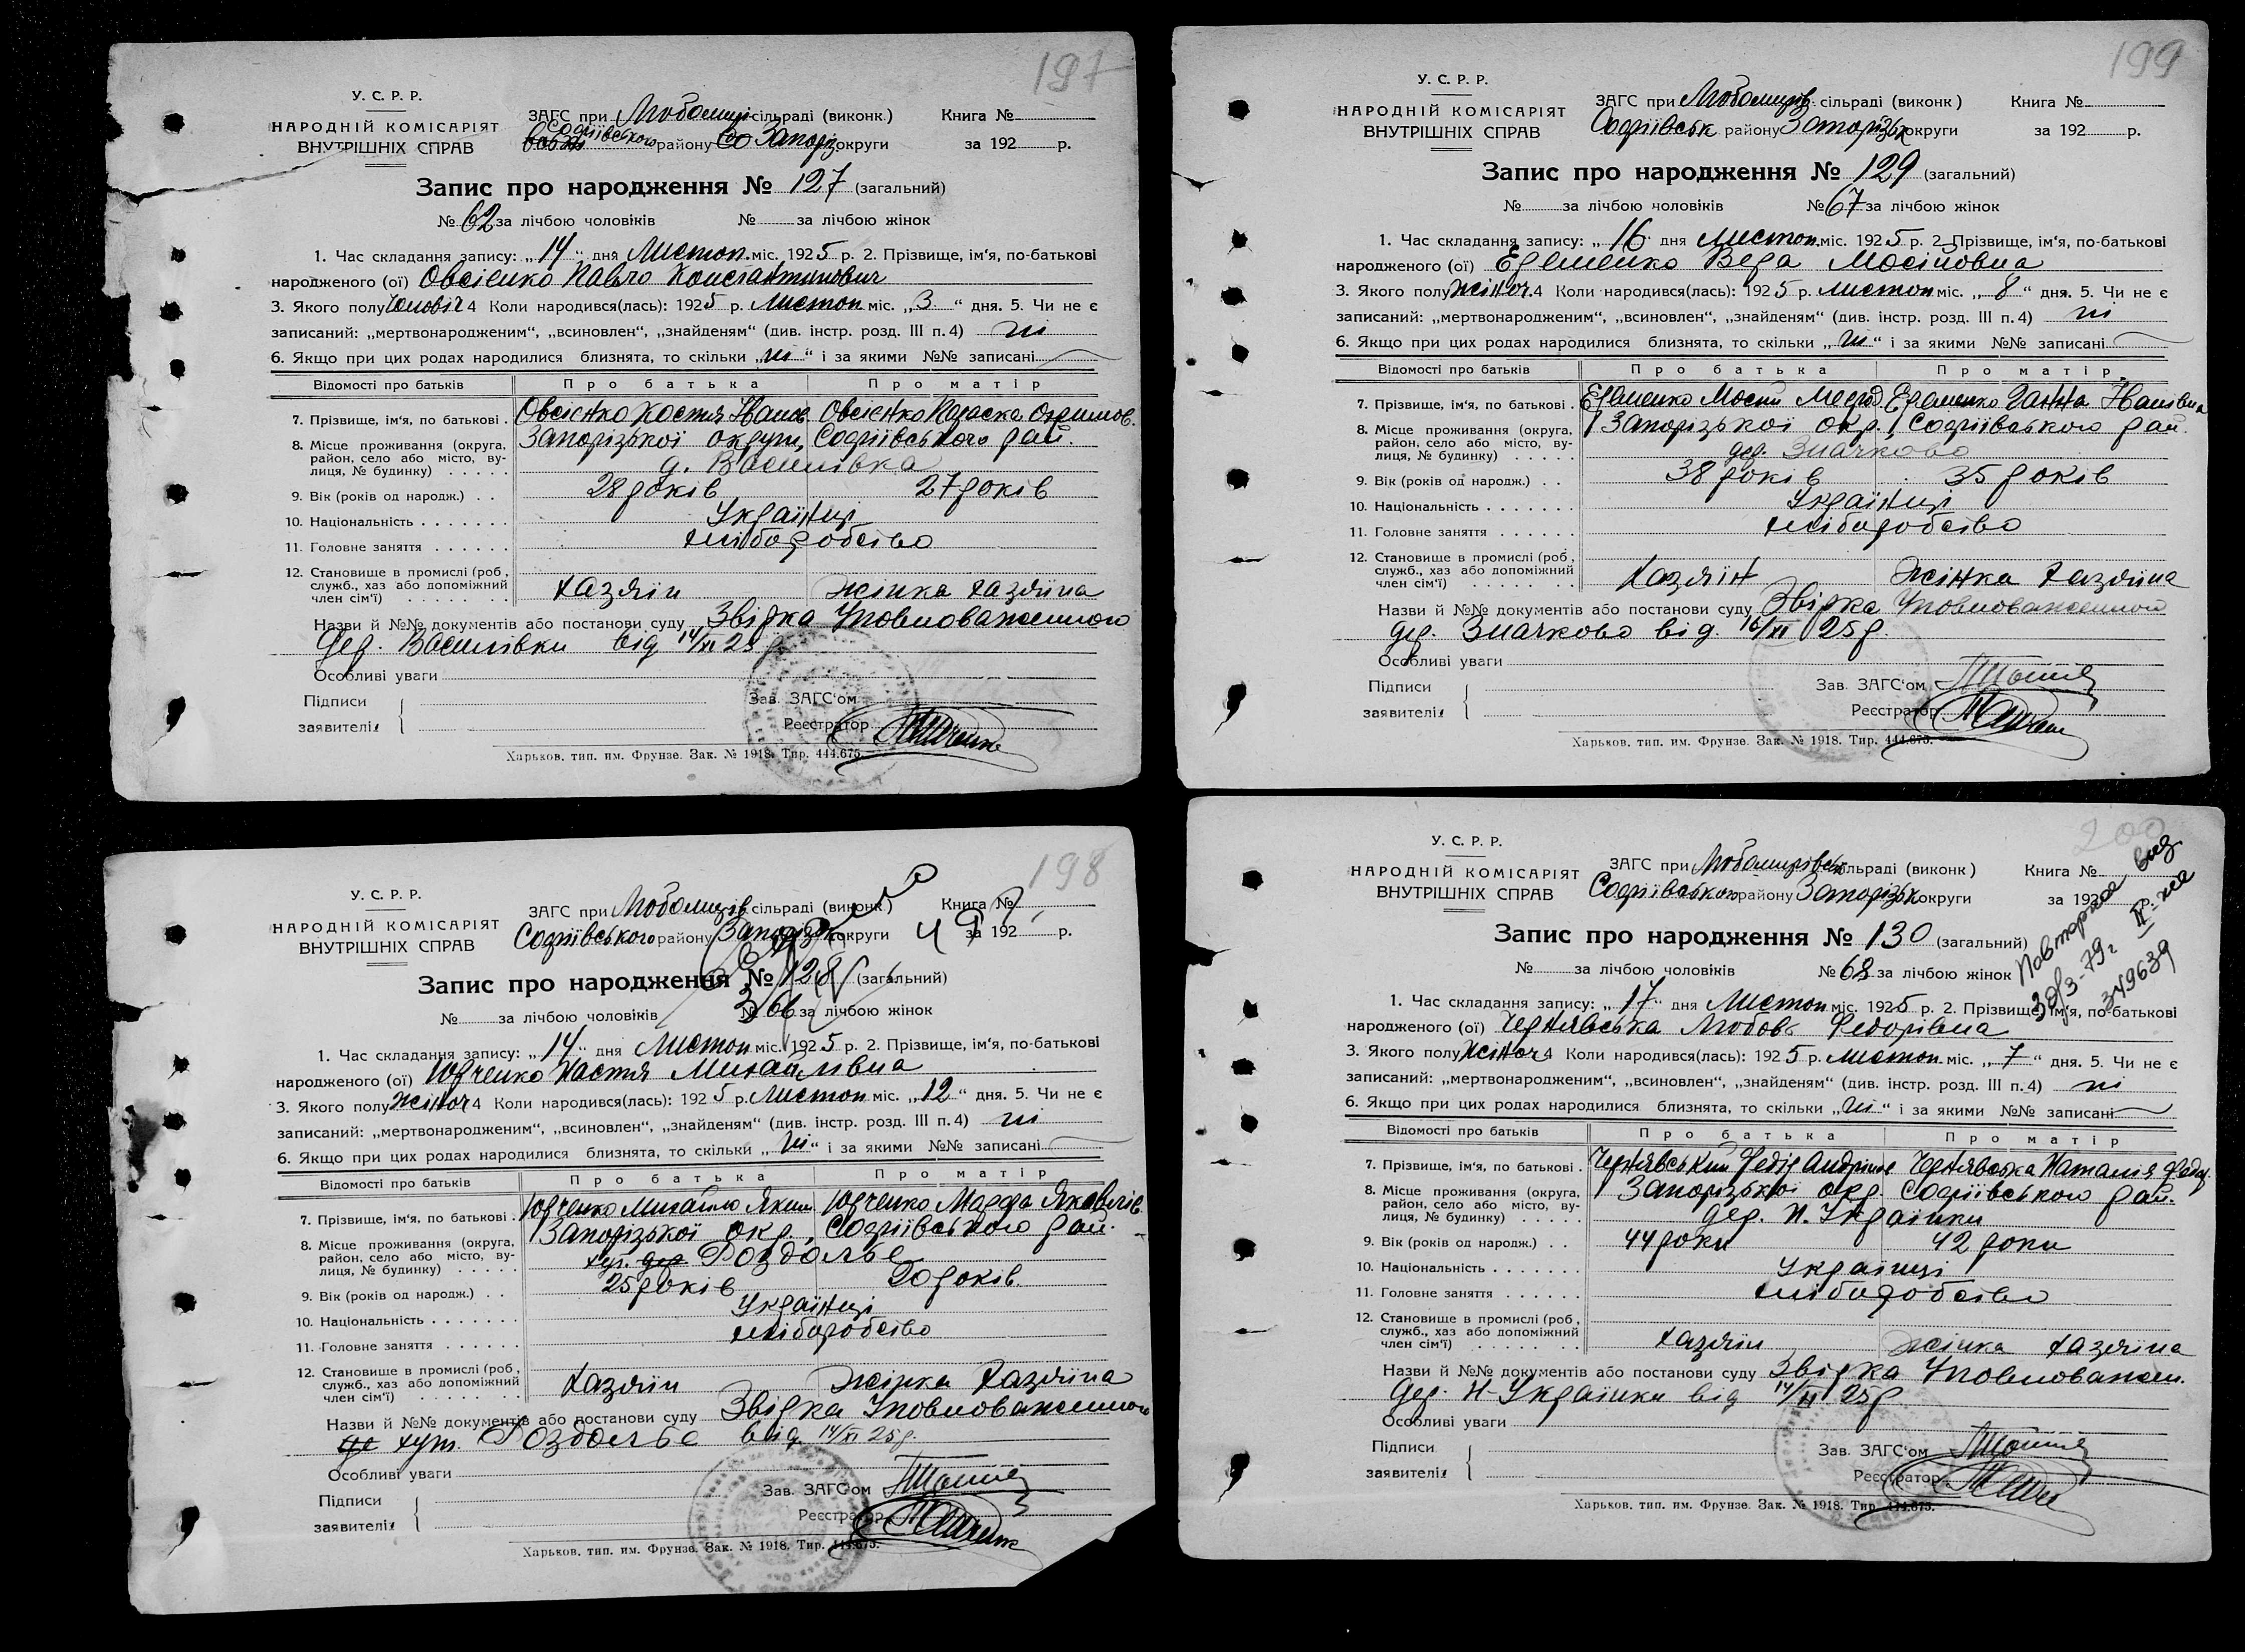 197
У. С. Р. Р.
НАРОДНІЙ КОМІСАРІЯТ
ВНУТРІШНІХ СПРАВ
ЗАГС при Любомирів сільраді (виконк.) Книга №
Софіївського району Запоріз округи за 192 р.
Запис про народження № 127 (загальний)
№ 62 за лічбою чоловіків № за лічбою жінок
1. Час складання запису: „14“ дня Листоп. міс. 1925 р. 2. Прізвище, ім'я, по-батькові
народженого (ої) Овсієнко Павло Константинович
3. Якого полу Чоловіч 4 Коли народився(лась): 1925 р. Листоп міс. „3“ дня. 5. Чи не є
записаний: „мертвонародженим“, „всиновлен“, „знайденям“ (див. інстр. розд. III п. 4) ні
6. Якщо при цих родах народилися близнята, то скільки „ні“ і за якими №№ записані
Відомості про батьків Про батька Про матір
7. Прізвище, ім'я, по батькові . Овсієнко Костя Іванов. Овсієнко Параска
8. Місце проживання (округа, район, село або місто, вулиця, № будинку) Запорізької округи, Софіївського рай.
д. Василівка
9. Вік (років од народж.) . . 28 років 27 років
10. Національність Українці
11. Головне заняття хліборобство
12. Становище в промислі (роб., служб., хаз або допоміжний член сім'ї) хазяїн жінка хазяїна
Назви й №№ документів або постанови суду Звірка Уповноваженного
дер. Василівки від 14/XI 25
Особливі уваги
Підписи
заявителів
Зав. ЗАГС'ом
Реєстратор
Харьков, тип. им. Фрунзе. Зак. № 1918. Тир. 444.675.
198
У. С. Р. Р.
НАРОДНІЙ КОМІСАРІЯТ
ВНУТРІШНІХ СПРАВ
ЗАГС при Любомирів сільраді (виконк.) Книга №
Софіївського району Запорізьк округи за 192 р.
Запис про народження № 128 (загальний)
№ за лічбою чоловіків № 66 за лічбою жінок
1. Час складання запису: „14“ дня Листоп міс. 1925 р. 2. Прізвище, ім'я, по-батькові
народженого (ої) Юрченко Настя Михайлівна
3. Якого полу Жіноч 4 Коли народився(лась): 1925 р. Листоп міс. „12“ дня. 5. Чи не є
записаний: „мертвонародженим“, „всиновлен“, „знайденям“ (див. інстр. розд. III п. 4) ні
6. Якщо при цих родах народилися близнята, то скільки „ні“ і за якими №№ записані
Відомості про батьків Про батька Про матір
7. Прізвище, ім'я, по батькові . Юрченко Михайло Яким Юрченко Марфа Яковлів.
8. Місце проживання (округа, район, село або місто, вулиця, № будинку) Запорізької окр., Софіївського рай.
хут. Роздольє
9. Вік (років од народж.) . . 25 років 20 років.
10. Національність Українці
11. Головне заняття хліборобство
12. Становище в промислі (роб., служб., хаз або допоміжний член сім'ї) хазяїн жінка хазяїна
Назви й №№ документів або постанови суду Звірка Уповноваженного
хут. Роздольє від 14/XI 25 р.
Особливі уваги
Підписи
заявителів
Зав. ЗАГС'ом
Реєстратор
Харьков, тип. им. Фрунзе. Зак. № 1918. Тир. 444.675.
199
У. С. Р. Р.
НАРОДНІЙ КОМІСАРІЯТ
ВНУТРІШНІХ СПРАВ
ЗАГС при Любомирів. сільраді (виконк.) Книга №
Софіївськ району Запорізьк округи за 192 р.
Запис про народження № 129 (загальний)
№ за лічбою чоловіків № 67 за лічбою жінок
1. Час складання запису: „16“ дня Листоп міс. 1925 р. 2. Прізвище, ім'я, по-батькові
народженого (ої) Еременко Вера Мосійовна
3. Якого полу Жіноч. 4 Коли народився(лась): 1925 р. Листоп міс. „8“ дня. 5. Чи не є
записаний: „мертвонародженим“, „всиновлен“, „знайденям“ (див. інстр. розд. III п. 4) ні
6. Якщо при цих родах народилися близнята, то скільки „ні“ і за якими №№ записані
Відомості про батьків Про батька Про матір
7. Прізвище, ім'я, по батькові . Еременко Мосій Еременко Ганна Іванівна
8. Місце проживання (округа, район, село або місто, вулиця, № будинку) Запорізької окр., Софіївського рай.
дер. Значково
9. Вік (років од народж.) . . 38 років 35 років
10. Національність Українці
11. Головне заняття хліборобство
12. Становище в промислі (роб., служб., хаз або допоміжний член сім'ї) хазяїн жінка хазяїна
Назви й №№ документів або постанови суду Звірка Уповноваженного
дер. Значково від. 16/XI 25 р.
Особливі уваги
Підписи
заявителів
Зав. ЗАГС'ом
Реєстратор
Харьков, тип. им. Фрунзе. Зак. № 1918. Тир. 444.675.
200
Повторное выд
30/3-79 г IV-жс
349639
У. С. Р. Р.
НАРОДНІЙ КОМІСАРІЯТ
ВНУТРІШНІХ СПРАВ
ЗАГС при Любомирівськ сільраді (виконк.) Книга №
Софіївського району Запорізьк округи за 192 р.
Запис про народження № 130 (загальний)
№ за лічбою чоловіків № 68 за лічбою жінок
1. Час складання запису: „17“ дня Листоп міс. 1925 р. 2. Прізвище, ім'я, по-батькові
народженого (ої) Чернявська Любовь Федорівна
3. Якого полу Жіноч 4 Коли народився(лась): 1925 р. Листоп міс. „7“ дня. 5. Чи не є
записаний: „мертвонародженим“, „всиновлен“, „знайденям“ (див. інстр. розд. III п. 4) ні
6. Якщо при цих родах народилися близнята, то скільки „ні“ і за якими №№ записані
Відомості про батьків Про батька Про матір
7. Прізвище, ім'я, по батькові . Чернявський Федір Андрійов Чернявська Наталія Федор.
8. Місце проживання (округа, район, село або місто, вулиця, № будинку) Запорізької окр. Софіївського рай.
дер. Н. Українки
9. Вік (років од народж.) . . 44 роки 42 роки
10. Національність Українці
11. Головне заняття хліборобство
12. Становище в промислі (роб., служб., хаз або допоміжний член сім'ї) хазяїн жінка хазяїна
Назви й №№ документів або постанови суду Звірка Уповноважен.
дер. Н-Українки від 14/XI 25 р
Особливі уваги
Підписи
заявителів
Зав. ЗАГС'ом
Реєстратор
Харьков, тип. им. Фрунзе. Зак. № 1918. Тир. 444.675.